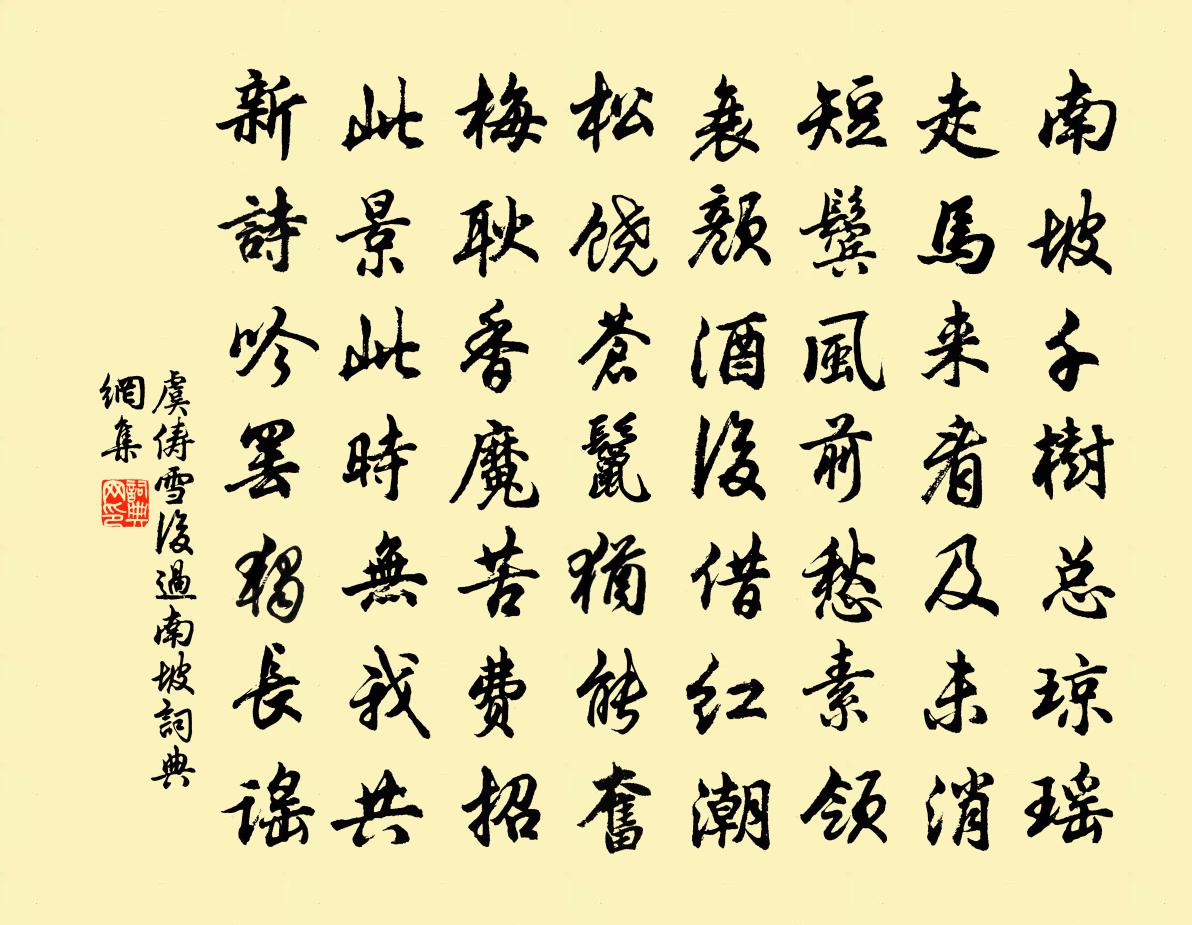 南坡千樹总琼瑶
走馬来看及未消
短鬓風前愁素领
衰颜酒後借红潮
松饶蒼鬣猶能奮
梅耿香魔苦費招
此景此時無我共
新詩吟罢獨長谣
虞俦雪後過南坡詞典
網集
詞典
网印